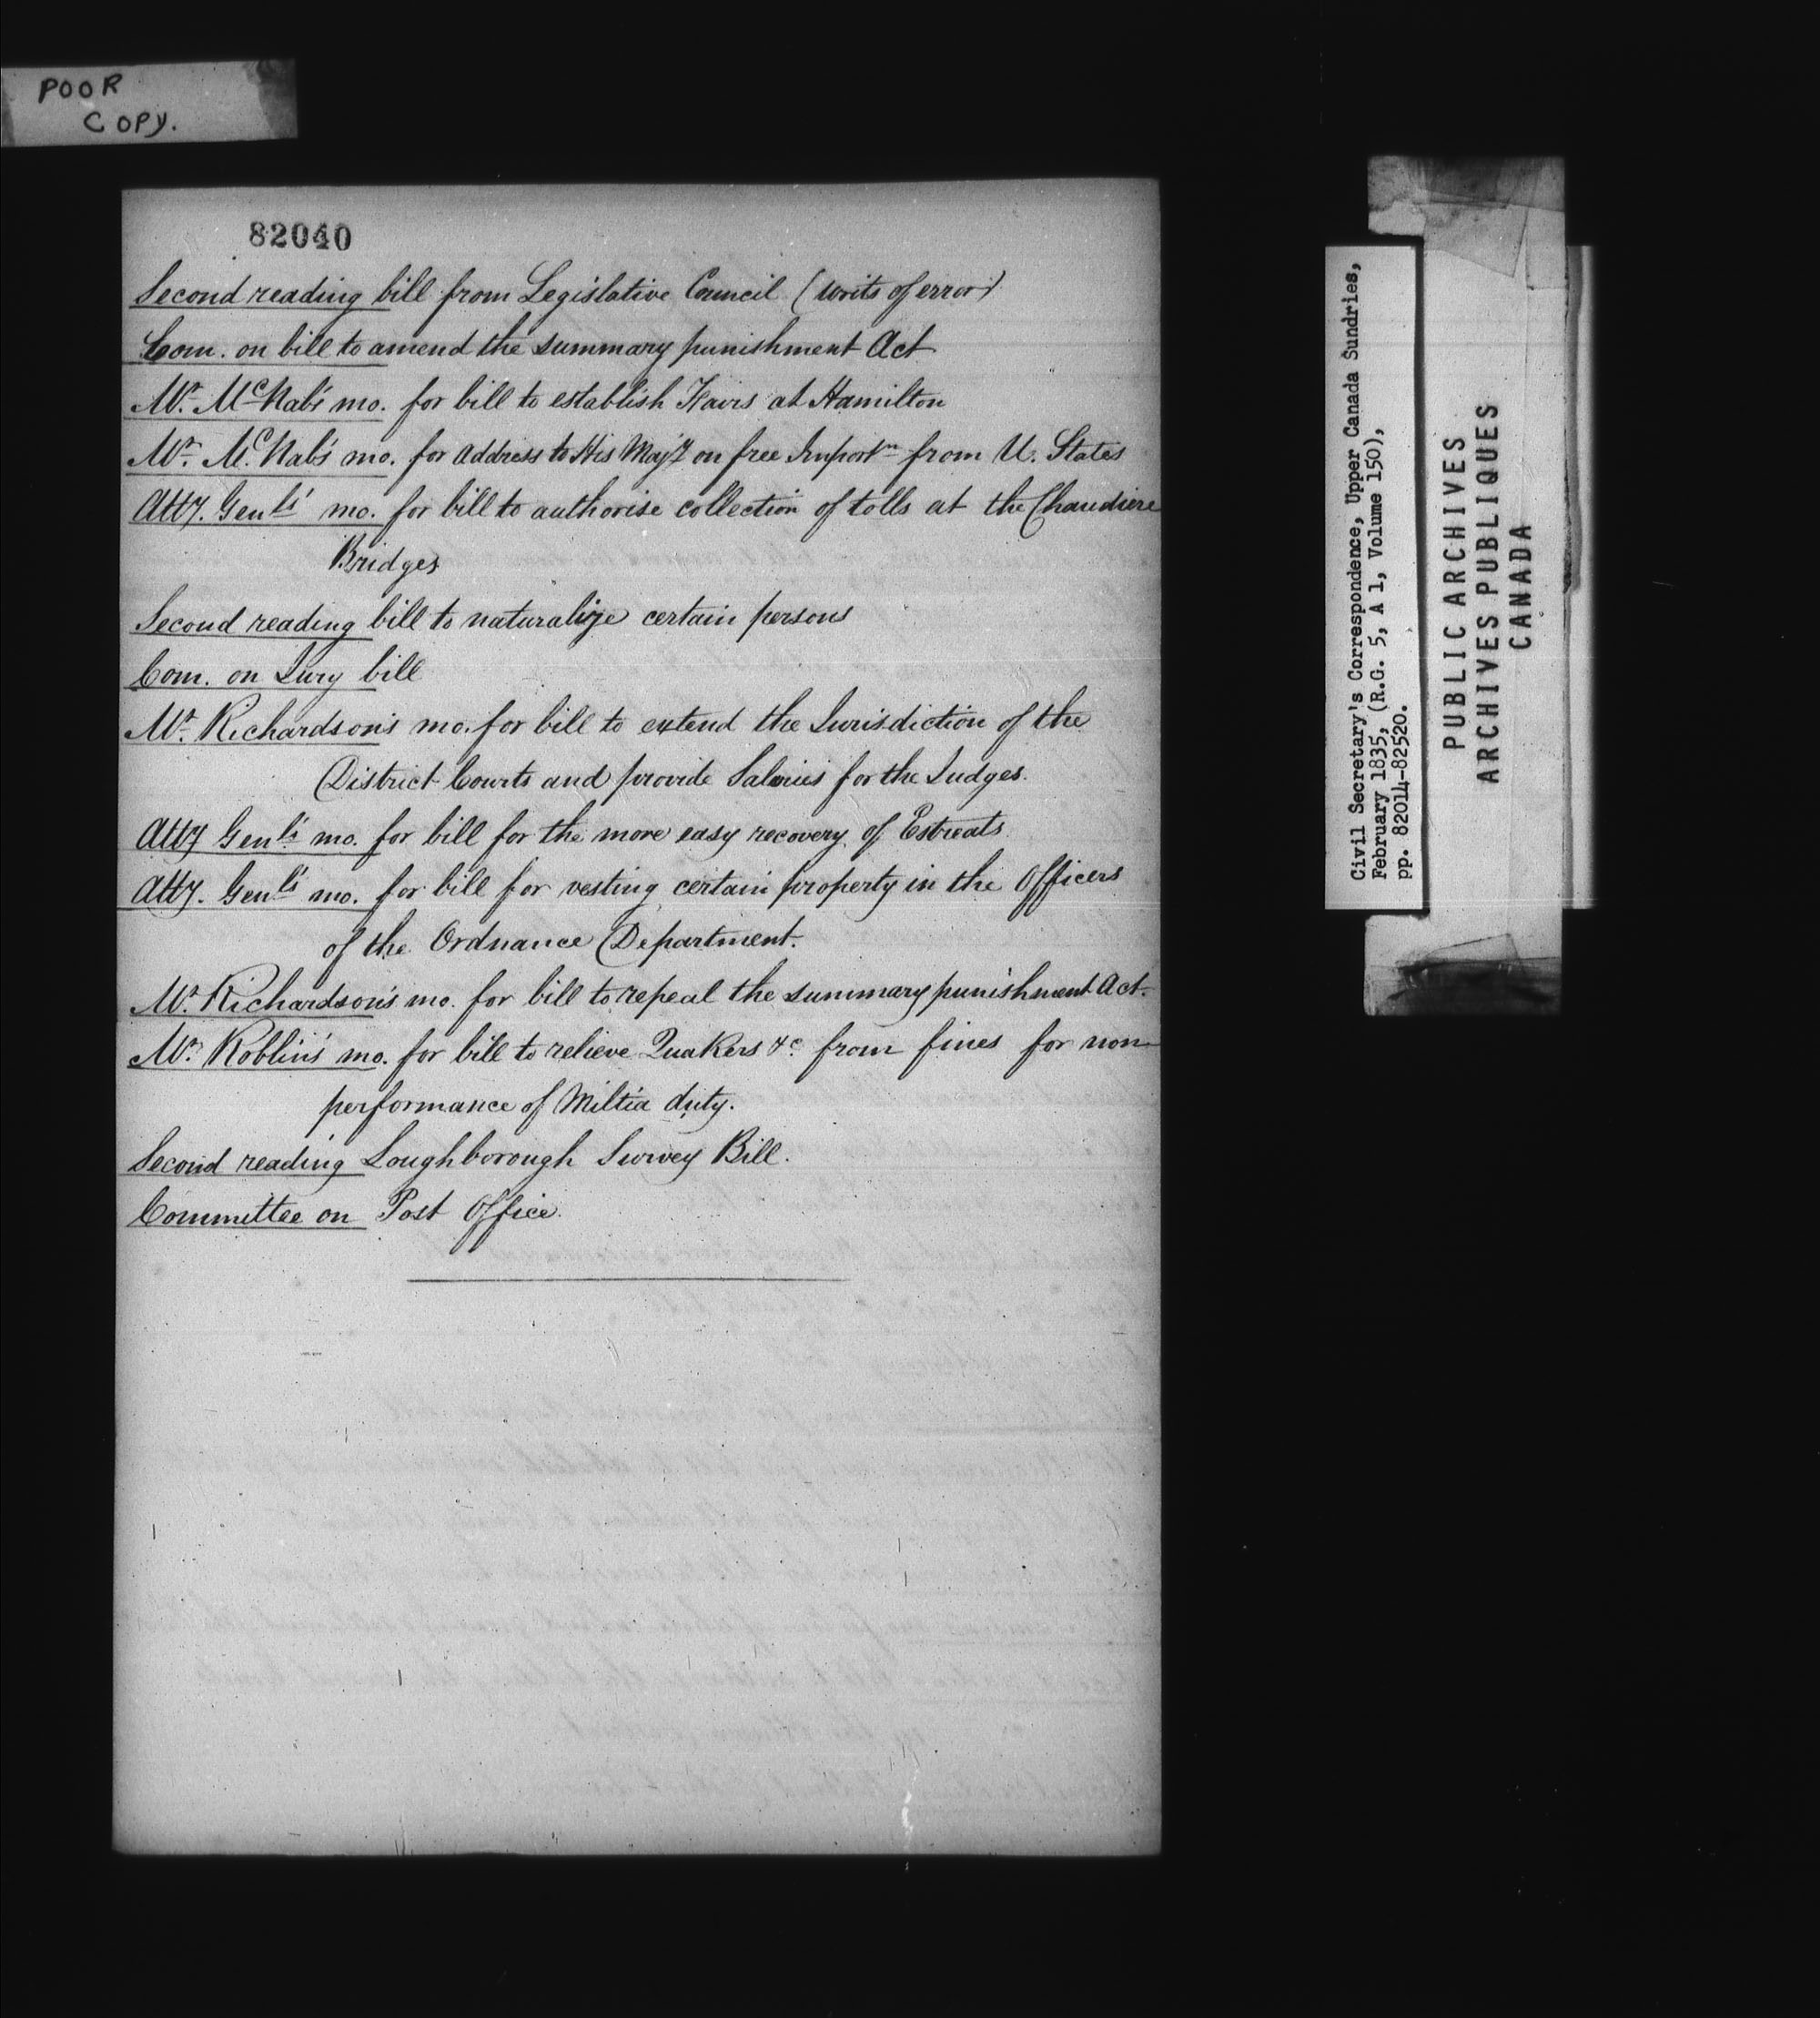 POOR
COPY.
82040
Second reading bill from Legislative Council (writs of error)
Com. on bill to amend the summary punishment Act
Mr. McNab's mo. for bill to establish Fairs at Hamilton
Mr. McNab's mo. for Address to His Maj'y on free Importn from U. States
Atty. Genl's mo. for bill to authorise collection of tolls at the Chaudiere
Bridges
Second reading bill to naturalize certain persons
Com. on Jury bill
Mr. Richardson's mo. for bill to extend the Jurisdiction of the
District Courts and provide Salaries for the Judges.
Atty Genl's mo. for bill for the more easy recovery of Estreats
Atty. Genl's mo. for bill for vesting certain property in the Officers
of the Ordnance Department.
Mr. Richardson's mo. for bill to repeal the summary punishment Act.
Mr. Roblin's mo. for bill to relieve Quakers &c. from fines for non-
performance of Miltia duty.
Second reading Loughborough Survey Bill.
Committee on Post Office.
Civil Secretary's Correspondence, Upper Canada Sundries,
February 1835, (R.G. 5, A 1, Volume 150),
pp. 82014-82520.
PUBLIC ARCHIVES
ARCHIVES PUBLIQUES
CANADA